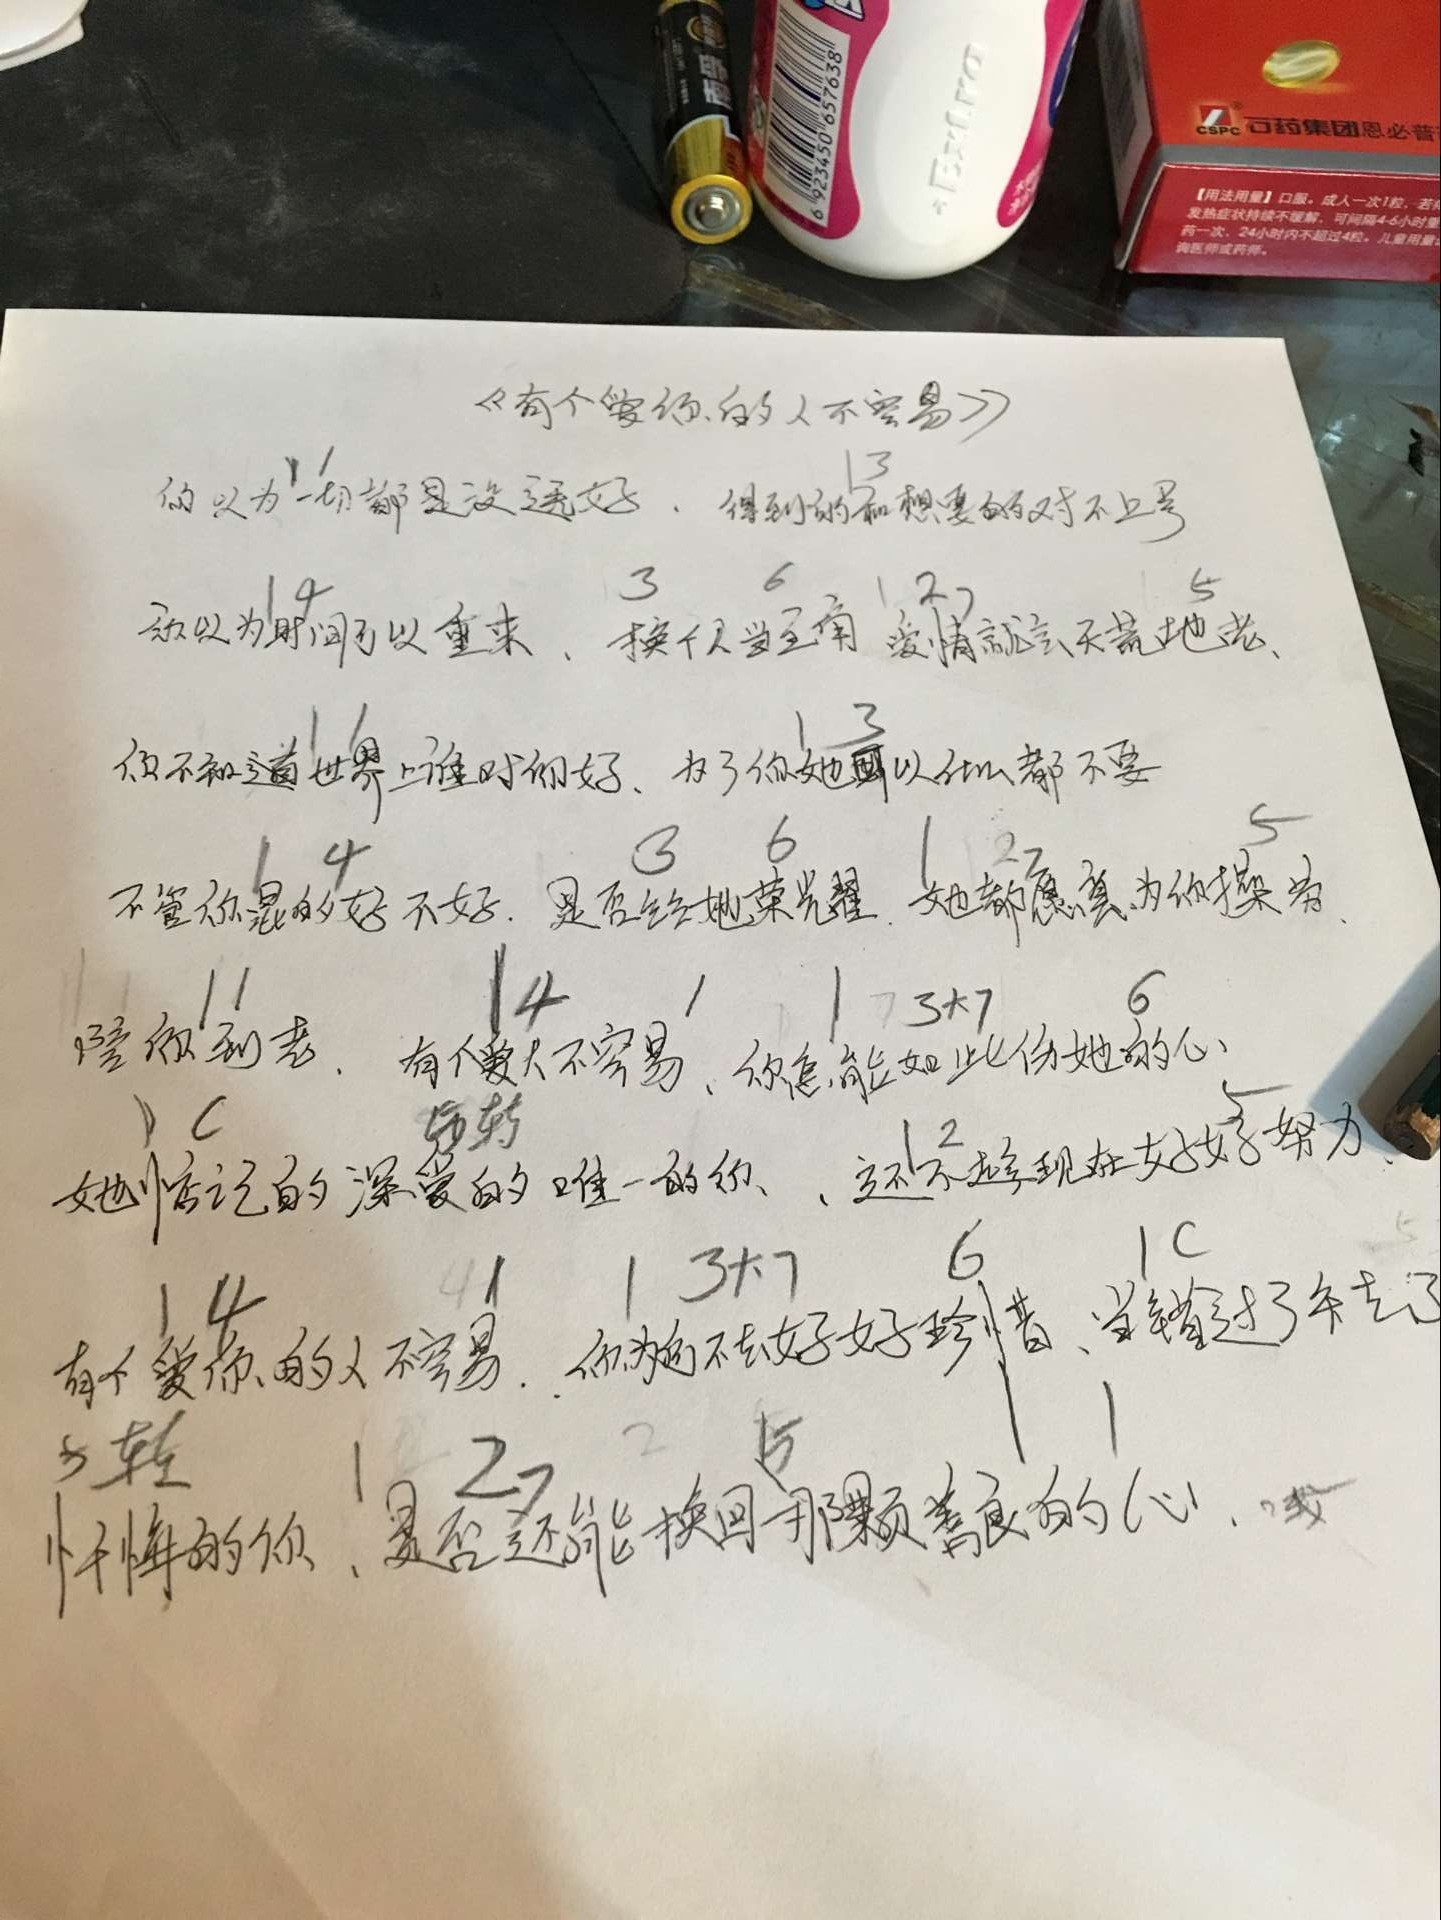 南孚
6 923450 657638
Extra
CSPC 石药集团恩必普
【用法用量】口服。成人一次1粒，若
发热症状持续不缓解，可间隔4-6小时重
药一次，24小时内不超过4粒。儿童用量
询医师或药师。
《有个爱你的人不容易》
1 1 1 3
你以为一切都是没选好、得到的和想要的对不上号
1 4 3 6 1 2 7 5
就以为时间可以重来、换个人当主角 爱情就会天荒地老、
1 1 1 3
你不知道世界上谁对你好、为了你她可以什么都不要
1 4 3 6 1 2 7 5
不管你混的好不好、是否给她荣光耀、她都愿意为你操劳、
1 1 1 4 1 1 7 3大7 6
陪你到老、有个爱人不容易、你怎能如此伤她的心
1 C 5转 1 2 5
她惦记的深爱的唯一的你、、还不趁现在好好努力、
1 4 4 1 1 3大7 6 1 C 5
有个爱你的人不容易、你为何不去好好珍惜、当错过了失去了
5转 1 2 7 2 5 1 1
忏悔的你、是否还能换回那颗善良的心、